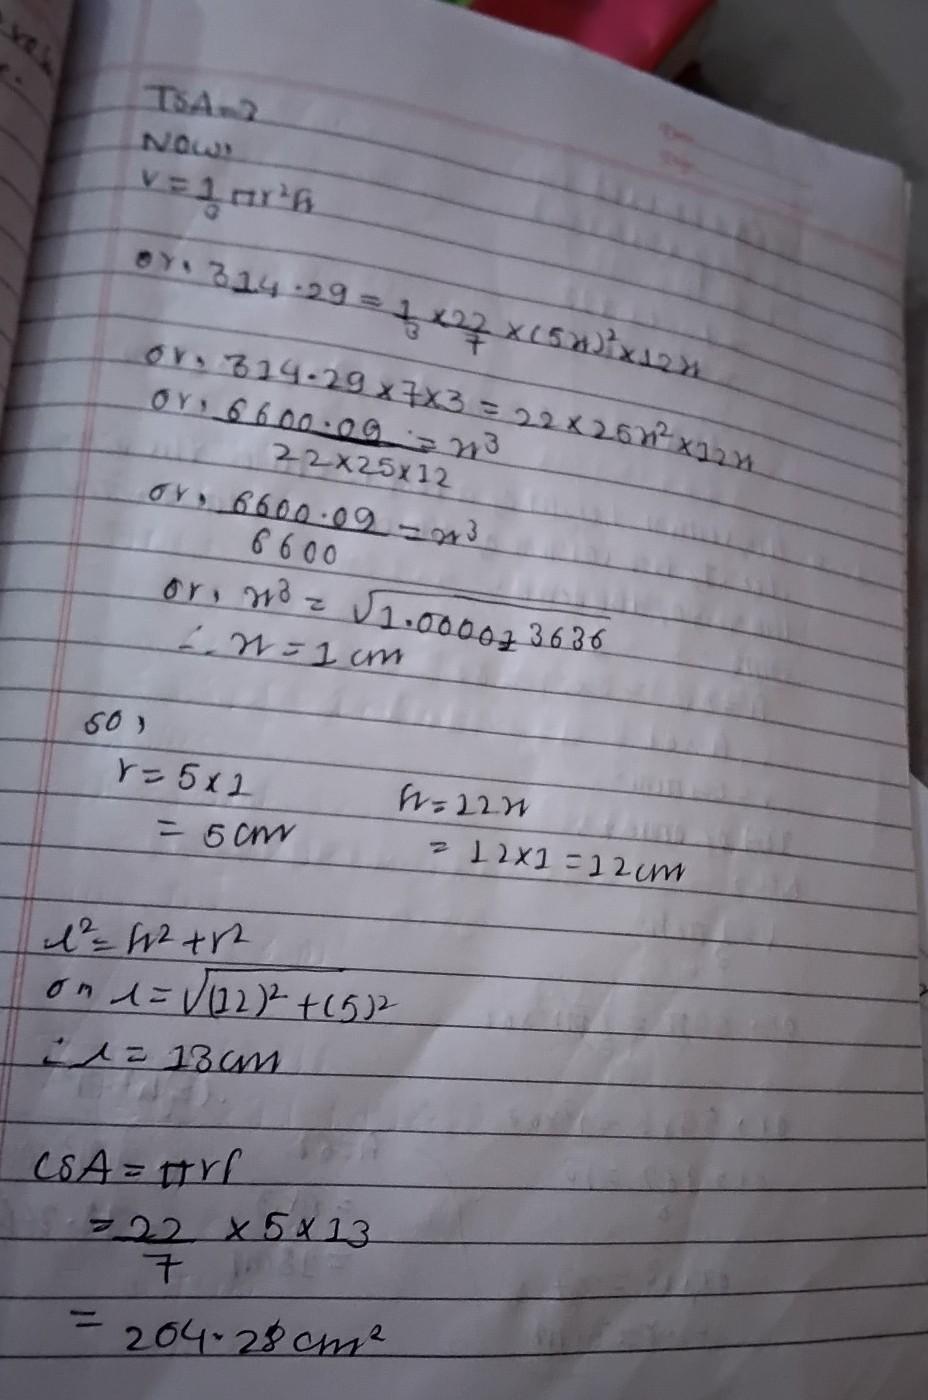 TSA=?
Now,
V = 1/3 πr²h
or, 314.29 = 1/3 × 22/7 × (5x)² × 12x
or, 314.29 × 7 × 3 = 22 × 25x² × 12x
or, 6600.09 / 22×25×12 = x³
or, 6600.09 / 6600 = x³
or, x³ = √1.000013636
∴ x = 1 cm
so,
r = 5 × 1
h = 12x
= 5 cm
= 12 × 1 = 12 cm
l² = h² + r²
or, l = √(12)² + (5)²
∴ l = 13 cm
CSA = πrl
= 22/7 × 5 × 13
= 204.28 cm²